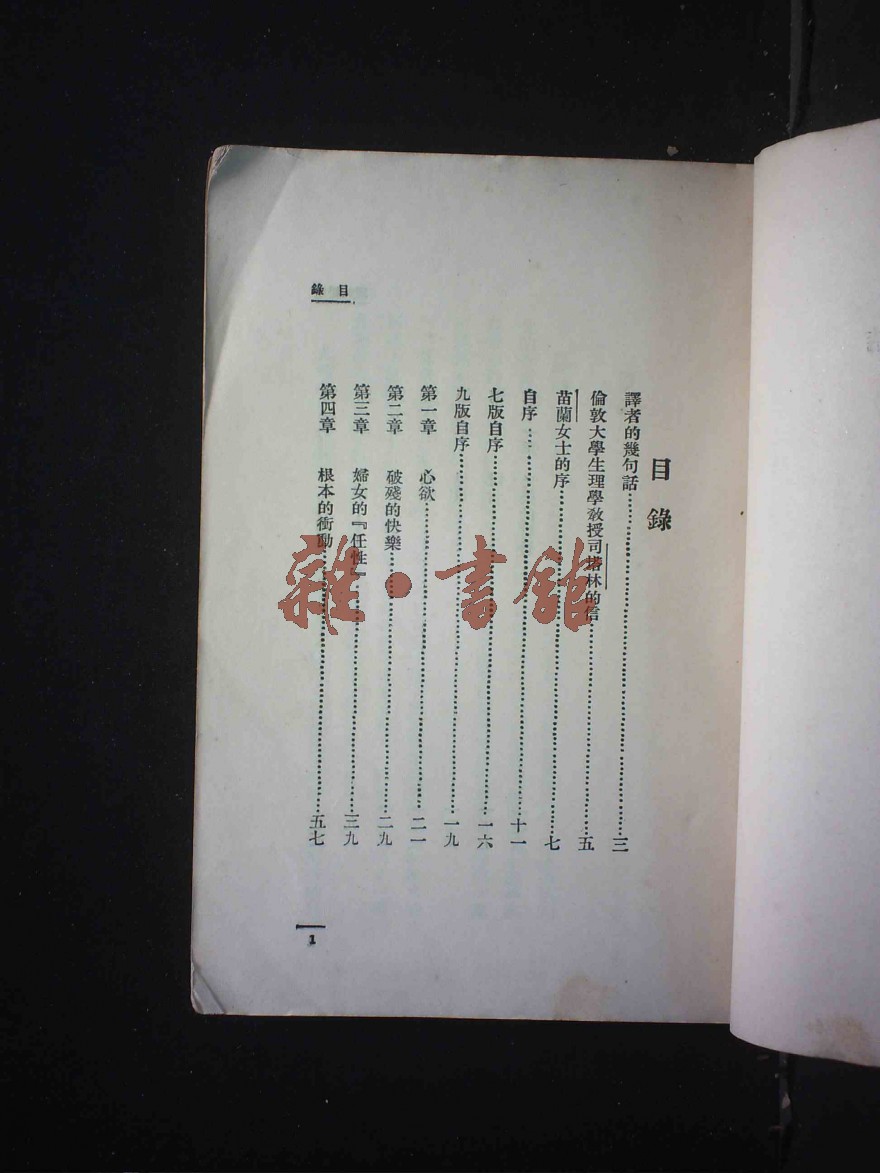 目錄
目錄
譯者的幾句話……三
倫敦大學生理學敎授司塔林的信……五
苗蘭女士的序……七
自序……十一
七版自序……一六
九版自序……一九
第一章 心欲……二一
第二章 破殘的快樂……二九
第三章 婦女的『任性』……三九
第四章 根本的衝動……五七
1
雜·書館